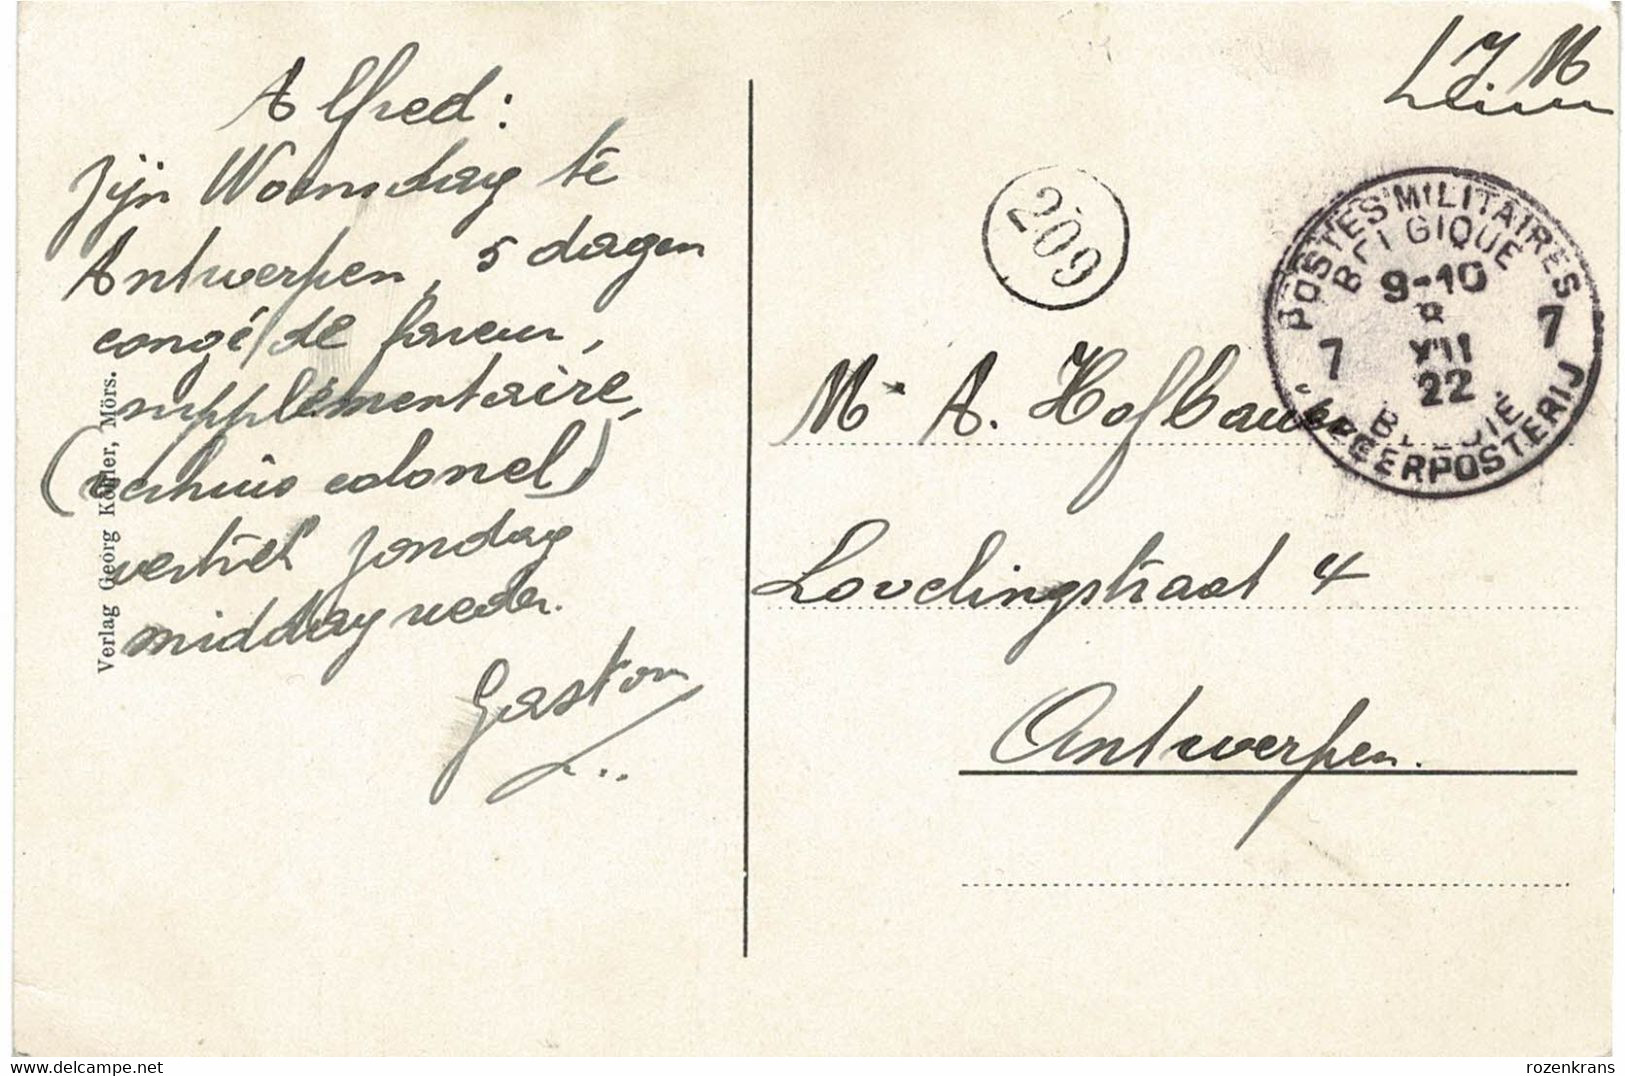 Alfred:
Zijn Woensdag te
Antwerpen, 5 dagen
congé de faveur,
supplémentaire,
( colonel)
vertrek zondag
middag weder.
Gaston
Verlag Georg Kogler, Mörs.
S.M
209
POSTES MILITAIRES
BELGIQUE
9-10
8
VII
22
7 7
LEGERPOSTERIJ
BELGIE
Mr A. Hofbauer
Lovelingstraat 4
Antwerpen.
rozenkrans